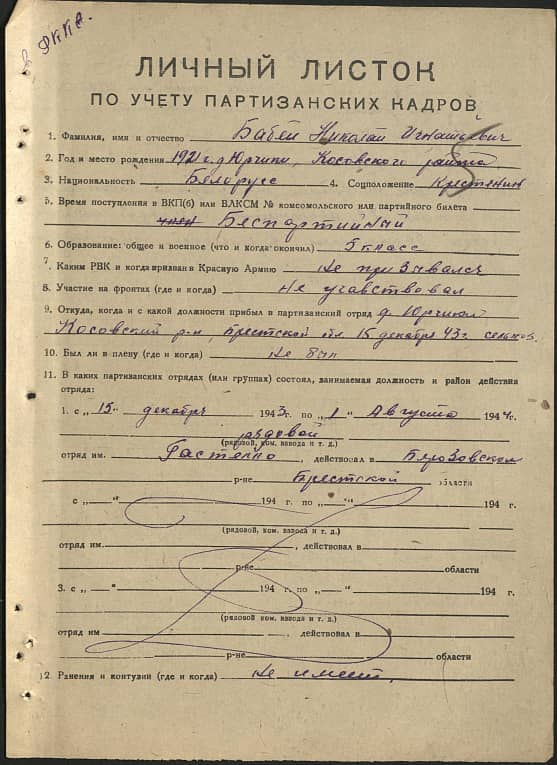 РККА.
ЛИЧНЫЙ ЛИСТОК
ПО УЧЕТУ ПАРТИЗАНСКИХ КАДРОВ
1. Фамилия, имя и отчество Бабей Николай Игнатьевич
2. Год и место рождения 1921 г. д. Юрчики, Косовского района
3. Национальность Белорусс 4. Соцположение Крестянин
5. Время поступления в ВКП(б) или ВЛКСМ № комсомольского или партийного билета
член Беспартийный
6. Образование: общее и военное (что и когда окончил) 5 класс
7. Каким РВК и когда призван в Красную Армию не призывался
8. Участие на фронтах (где и когда) не учавствовал
9. Откуда, когда и с какой должности прибыл в партизанский отряд д. Юрчики
Косовский р-н, Брестской обл 15 декабря 43 г.
10. Был ли в плену (где и когда) не был
11. В каких партизанских отрядах (или группах) состоял, занимаемая должность и район действия
отряда:
1. с „15" декабря 1943 г. по „1" Августа 1944 г.
рядовой
(рядовой, ком. взвода и т. д.)
отряд им. , действовал в Березовском
р-не Брестской области
с „ —" 194 г. по „—" 194 г.
(рядовой, ком. взвода и т. д.)
отряд им. , действовал в
р-не области
3. с „ —" 194 г. по „ —" 194 г.
(рядовой, ком. взвода и т. д.)
отряд им , действовал в
р-не области
12. Ранения и контузии (где и когда) не имеет.